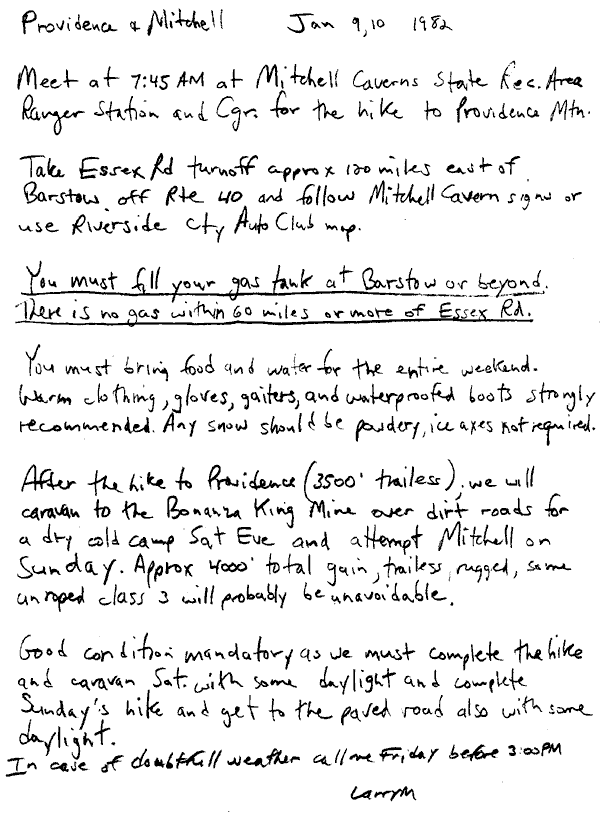 Providence & Mitchell Jan 9,10 1982
Meet at 7:45 AM at Mitchell Caverns State Rec. Area
Ranger Station and Cgr. for the hike to Providence Mtn.
Take Essex Rd turnoff approx 120 miles east of
Barstow off Rte 40 and follow Mitchell Cavern signs or
use Riverside Cty Auto Club map.
You must fill your gas tank at Barstow or beyond.
There is no gas within 60 miles or more of Essex Rd.
You must bring food and water for the entire weekend.
Warm clothing, gloves, gaiters, and waterproofed boots strongly
recommended. Any snow should be powdery, ice axes not required.
After the hike to Providence (3500' trailess), we will
caravan to the Bonanza King Mine over dirt roads for
a dry cold camp Sat Eve and attempt Mitchell on
Sunday. Approx 4000' total gain, trailess, rugged, some
unroped class 3 will probably be unavoidable.
Good condition mandatory as we must complete the hike
and caravan Sat. with some daylight and complete
Sunday's hike and get to the paved road also with some
daylight.
In case of doubtfull weather call me Friday before 3:00PM
LarryM